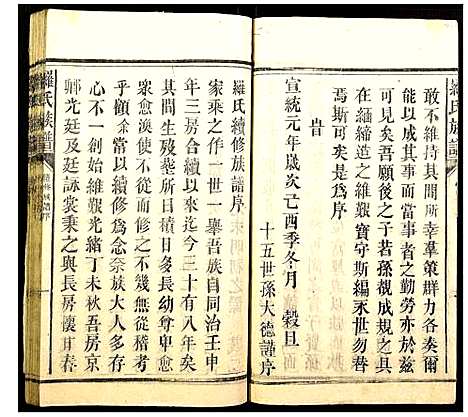 羅氏族譜
敢不維持其間所幸羣策羣力各奏爾
能以成其事而當事者之勤勞亦於是
可見矣吾願後之子若孫觀成規之具
在緬締造之維艱寶守斯編永世勿替
焉斯可矣是爲序
旹
宣統元年歲次己酉季冬月　穀旦
十五世孫大德謹序
羅氏續修族譜序
家乘之作一世一舉吾族自同治壬申
年三房合續以來迄今三十有八年矣
其間生歿葬所日積日多長幼尊卑愈
衆愈渙使不亟爲修輯不幾無從稽考
乎顧余當以續修爲念奈族大人多存
心不一創始維艱光緒丁未秋吾房京
卿光廷及廷詠裳乘之與長房懷甘春
羅氏族譜